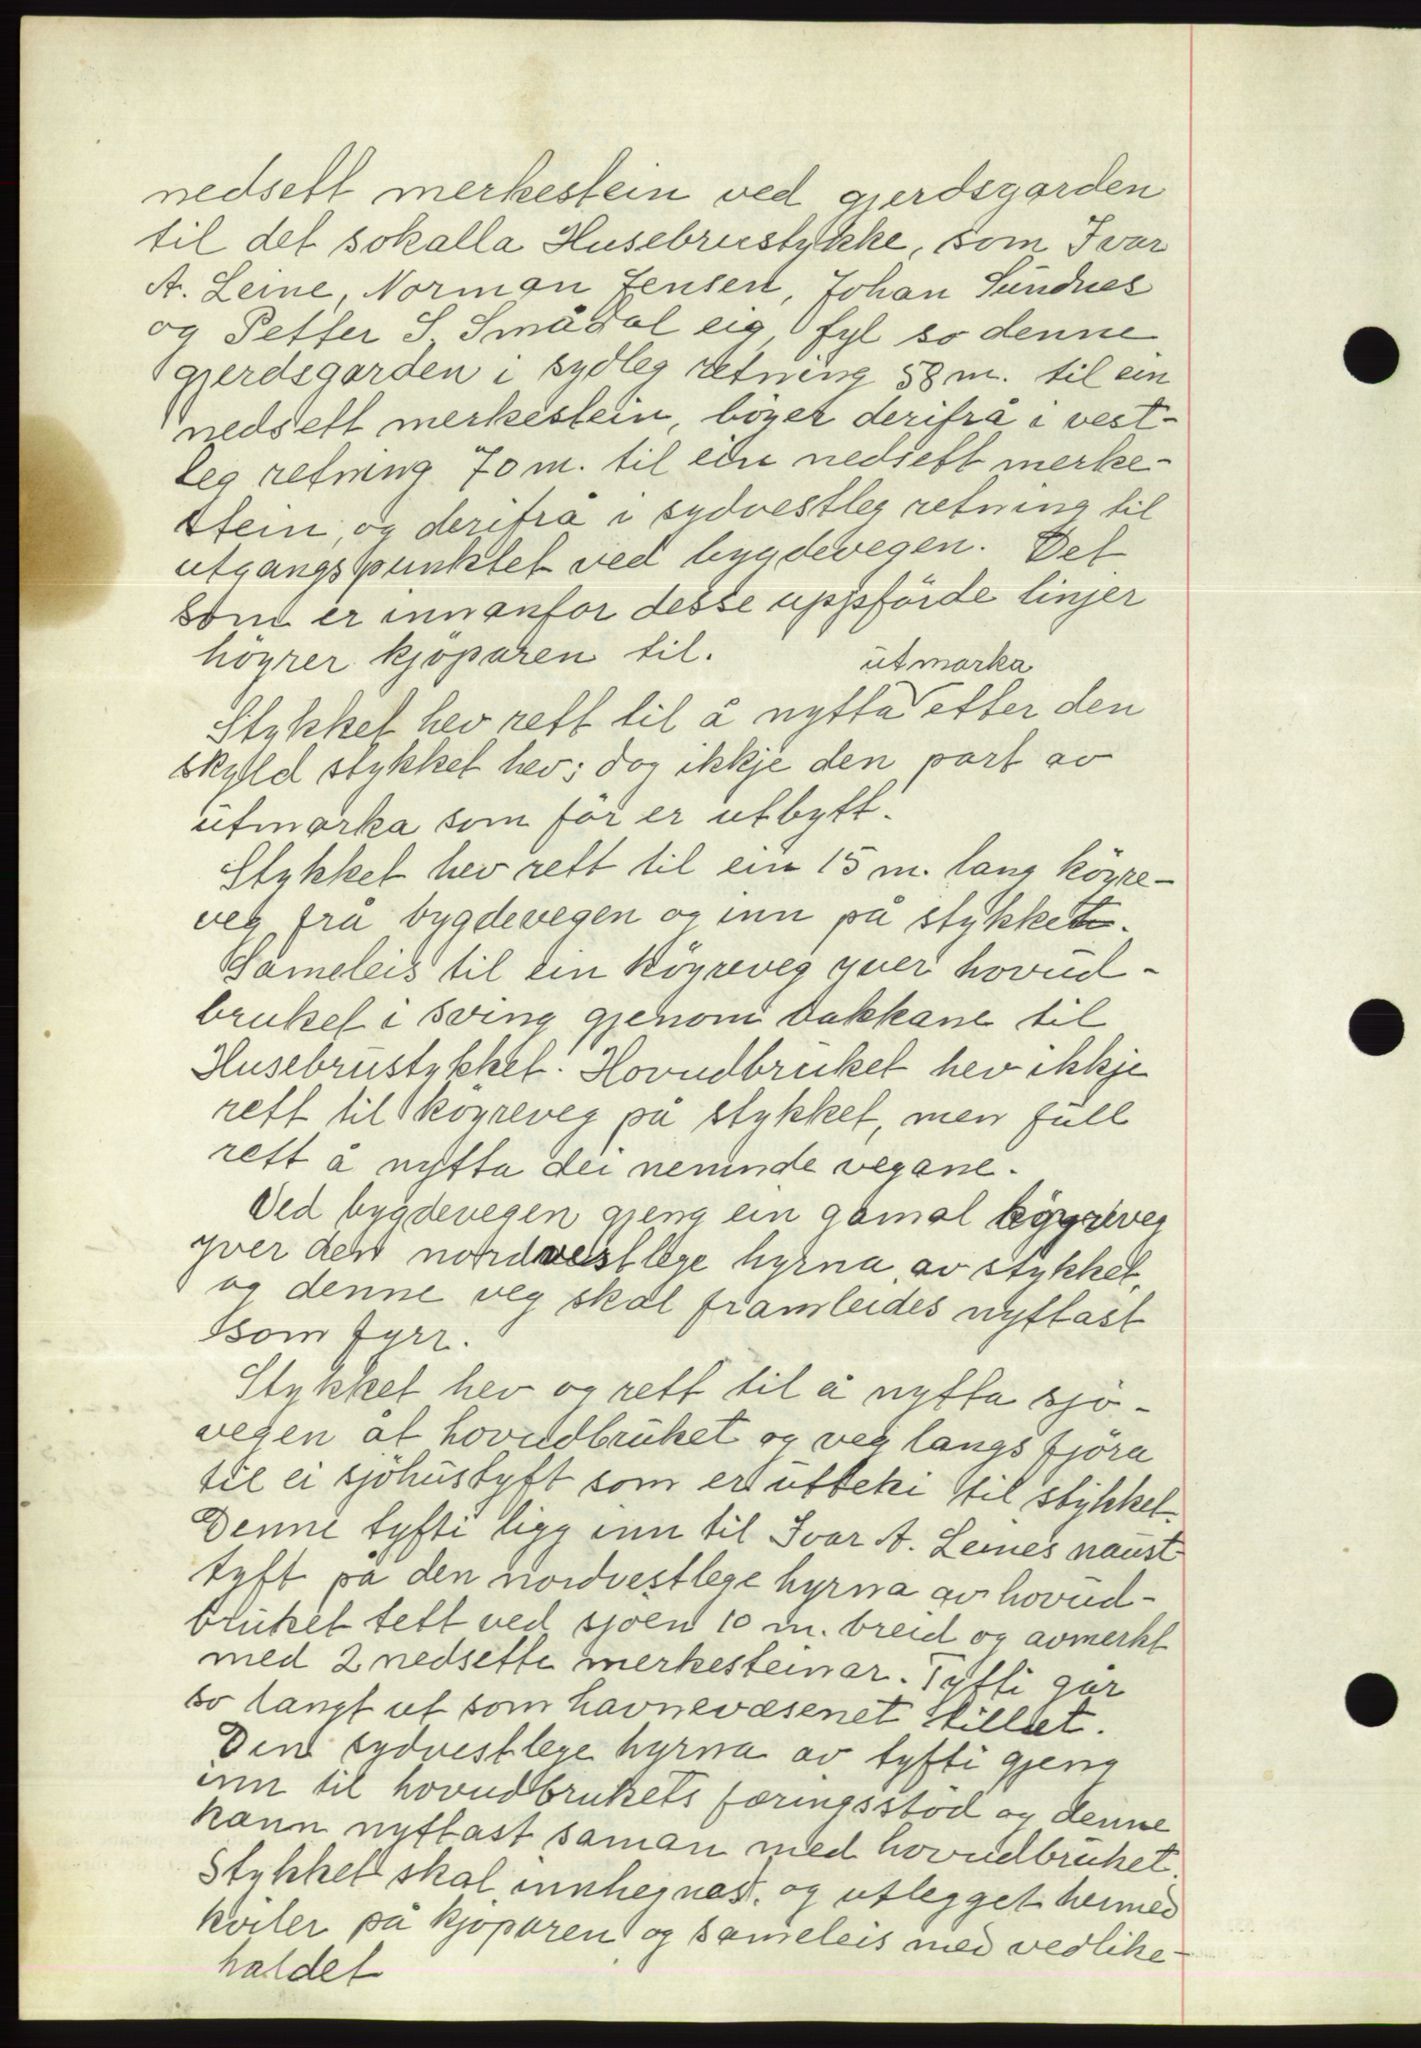 nedsett merkestein ved gjerdsgarden
til det sokalla Husebrustykke, som Ivar
A. Leine, Norman Jensen, Johan Sundnes
og Petter S. Smådal eig, fyl so denne
gjerdsgarden i sydleg retning 58 m. til ein
nedsett merkestein, böyer derifrå i vest-
leg retning 70 m. til ein nedsett merke-
stein, og derifrå i sydvestleg retning til
utgangspunktet ved bygdevegen. Det
som er innanfor desse uppförde linjer
höyrer kjöparen til.
utmarka
Stykket hev rett til å nytta etter den
skyld stykket hev; dog ikkje den part av
utmarka som för er utbytt.
Stykket hev rett til ein 15 m. lang köyre-
veg frå bygdevegen og inn på stykket.
Sameleis til ein köyreveg yver hovud-
bruket i sving gjenom bakkane til
Husebrustykket. Hovudbruket hev ikkje
rett til köyreveg på stykket, men full
rett å nytta dei nemnde vegane.
Ved bygdevegen gjeng ein gamal köyreveg
yver den nordvestlege hyrna av stykket,
og denne veg skal framleides nyttast
som fyrr.
Stykket hev og rett til å nytta sjö-
vegen åt hovudbruket og veg langs fjöra
til ei sjöhustyft som er utteki til stykket.
Denne tyfti ligg inn til Ivar A. Leines naust-
tyft på den nordvestlege hyrna av hovud-
bruket tett ved sjöen 10 m. breid og avmerkt
med 2 nedsette merkesteinar. Tyfti går
so langt ut som havnevæsenet tillet.
Den sydvestlege hyrna av tyfti gjeng
inn til hovudbrukets föringsstöd og denne
kann nyttast saman med hovudbruket.
Stykket skal innhegnast, og utlegget hermed
kviler på kjöparen og sameleis med vedlike-
haldet